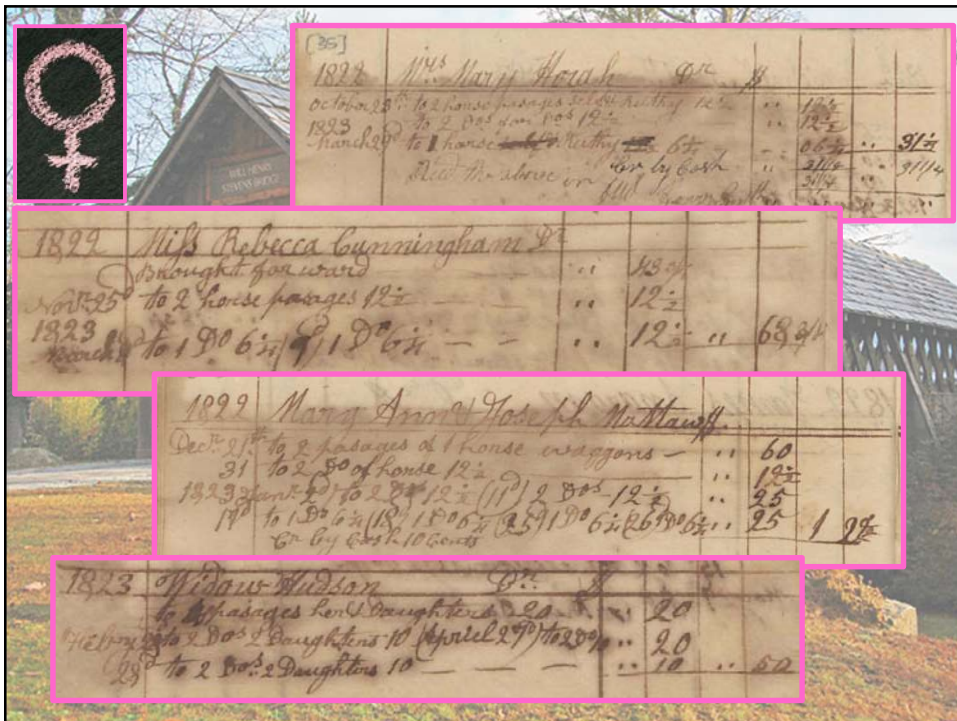 [35]
1822 Mrs Mary Horah Dr $
October 28th to 2 horse pasages self & Ruthy 12½ " 12½
to 2 Dos Dos 12½ " 12½
1823
March 29d to 1 horse Ruthy 6¼ " 06¼ " 31¼
Cr by Cash 31¼ " 31¼
Recd the above in
1822 Miss Rebecca Cunningham Dr
Brought forward " 43¾
Novr 25d to 2 horse pasages 12½ " 12½
1823
March to 1 Do 6¼ 1 Do 6¼ — — " 12½ " 68¾
1822 Mary Ann Joseph $
Decr 21th to 2 pasages of 1 horse waggons — " 60
31 to 2 Do of horse 12½ " 12½
1823 Janr to 2 Do 12½ (11d) 2 Dos - 12½ " 25
17d to 1 Do 6¼ (18d) 1 Do 6¼ (25d) 1 Do 6¼ (26d) Do 6¼ " 25 1 22½
Cr by Cash 10 Cents
1823 Widow Hudson Dr $
to 4 pasages her & Daughters 20 " 20
to 2 Dos 2 Daughters 10 (April 27d) to 2 Do 10 " 20
28d to 2 Dos 2 Daughters 10 — — — — " 10 " 50
WILL HENRY
STEVENS BRIDGE